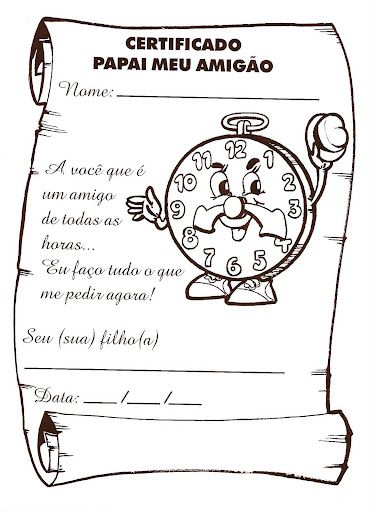 CERTIFICADO
PAPAI MEU AMIGÃO
Nome:
A você que é
um amigo
de todas as
horas...
Eu faço tudo o que
me pedir agora!
Seu (sua) filho(a)
Data: ___/___/___
11 12 1
10 2
9 3
8 4
7 6 5